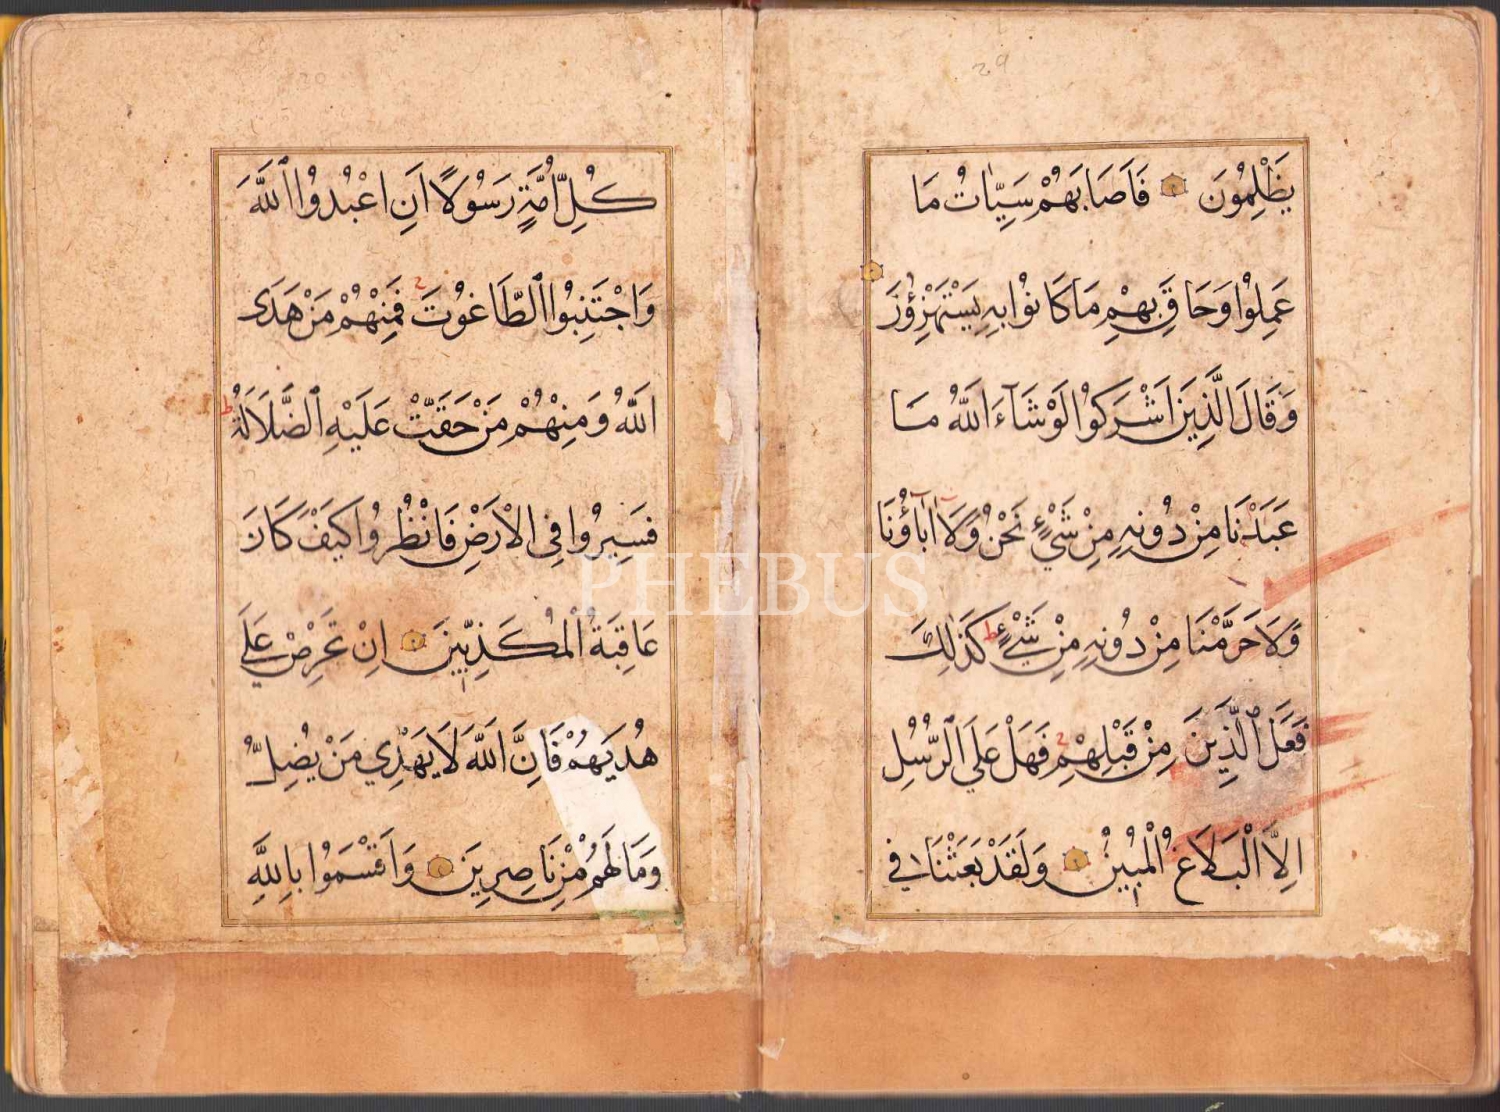 29
يَظْلِمُونَ فَاَصَابَهُمْ سَيِّاٰتُ مَا
عَمِلُوْا وَحَاقَ بِهِمْ مَاكَانُوْا بِهِ يَسْتَهْزِؤُنَ
وَقَالَ الَّذِينَ اَشْرَكُوْا لَوْشَآءَ اللّٰهُ مَا
عَبَدْنَا مِنْ دُونِهِ مِنْ شَيْءٍ نَحْنُ وَلَآ اٰبَآؤُنَا
وَلَا حَرَّمْنَا مِنْ دُونِهِ مِنْ شَيْءٍ ط كَذٰلِكَ
فَعَلَ الَّذِينَ مِنْ قَبْلِهِمْ فَهَلْ عَلَى الرُّسُلِ
اِلَّا الْبَلَاغُ الْمُبِيْنُ وَلَقَدْ بَعَثْنَا فِي
كُلِّ اُمَّةٍ رَسُوْلًا اَنِ اعْبُدُوا اللّٰهَ
وَاجْتَنِبُوا الطَّاغُوْتَ فَمِنْهُمْ مَنْ هَدَى
اللّٰهُ وَمِنْهُمْ مَنْ حَقَّتْ عَلَيْهِ الضَّلَالَةُ ط
فَسِيرُوا فِي الْاَرْضِ فَانْظُرُوا كَيْفَ كَانَ
عَاقِبَةُ الْمُكَذِّبِيْنَ اِنْ تَحْرِصْ عَلٰى
هُدٰيهُمْ فَاِنَّ اللّٰهَ لَا يَهْدِي مَنْ يُضِلُّ
وَمَا لَهُمْ مِنْ نَاصِرِينَ وَاَقْسَمُوا بِاللّٰهِ
PHEBUS